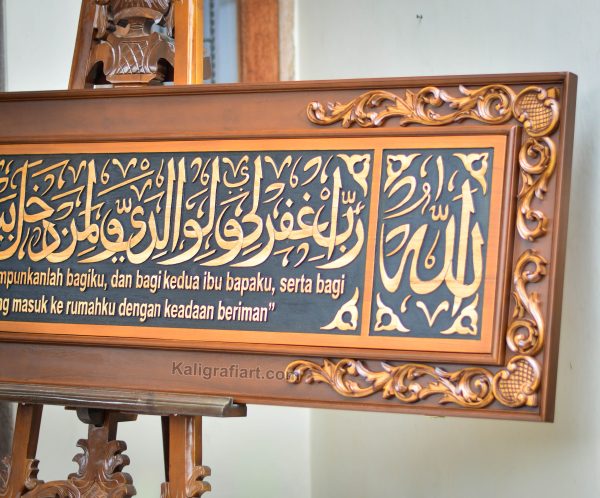 الله
رب اغفرلي ولوالدي ولمن دخل
mpunkanlah bagiku, dan bagi kedua ibu bapaku, serta bagi
ng masuk ke rumahku dengan keadaan beriman”
Kaligrafiart.com